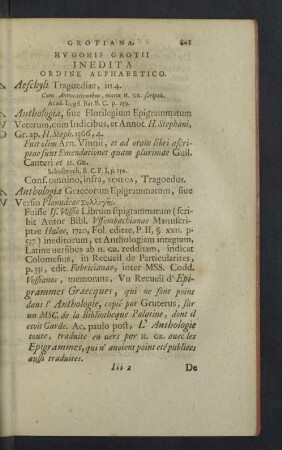 GROTIANA. 801
HVGONIS GROTII
INEDITA
ORDINE ALPHABETICO.
A. Aeschyli Tragoediae, in 4.
Cum Annotationibus, manu H. GR. scriptis.
Acad. Lugd. Bat. B. C. p. 239.
A. Anthologia, siue Florilegium Epigrammatum
Veterum, cum Indicibus, et Annot. H. Stephani,
Gr. ap. H. Steph. 1566, 4.
Fuit olim Arn. Vinnii, et ad oram libri ascri-
ptae sunt Emendationes quam plurimae Guil.
Canteri et H. GR.
Schalbruch, B. C. P. I, p. 150.
Conf. omnino, infra, SENECA, Tragoedus.
A. Anthologia Graecorum Epigrammatum, siue
Versio Planudeae Συλλογῆς.
Fuisse Is. Vossio Librum Epigrammatum (scri-
bit Autor Bibl. Vffenbachianae Manuscri-
ptae Halae, 1720, Fol. editae, P. II, §. XXII. p.
537) ineditorum, et Anthologiam integram,
Latine uersibus ab H. GR. redditam, indicat
Colomesius, in Recueil de Particularites,
p. 331, edit. Fabricianae, inter MSS. Codd.
Vossianos, memorans, Vn Recueil d' Epi-
grammes Graecques, qui ne sont point
dans l' Anthologie, copié par Gruterus, sur
un MSC. de la Bibliotheque Palatine, dont il
etoit Garde. Ac, paulo post, L' Anthologie
toute, traduite en uers par H. GR. auec les
Epigrammes, qui n' auoient point eté publiees
aussi traduites.
Iii 2 De